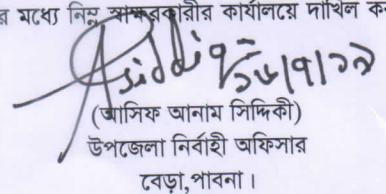 র মধ্যে নিম্ন স্বাক্ষরকারীর কার্যালয়ে দাখিল ক
২৮/৭/১৯
(আসিফ আনাম সিদ্দিকী)
উপজেলা নির্বাহী অফিসার
বেড়া,পাবনা।